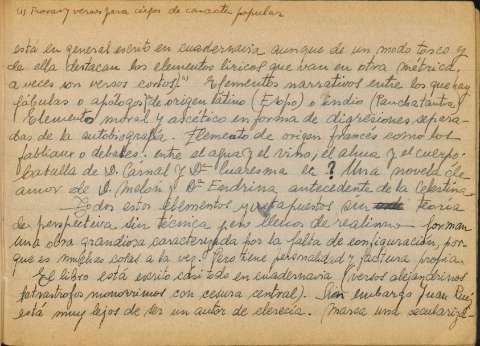 (1) Trovas y versos para ciegos de caracter popular
está en general escrito en cuadernavia aunque de un modo tosco y
de ella destacan los elementos liricos que van en otra métrica,
a veces son versos cortos.(1) Elementos narrativos entre los que hay
fábulas o apologos de origen latino (Esopo) o indio (Panchatantra)
Elemento moral y ascético en forma de digresiones separa-
das de la autobiografia. Elemento de origen francés como los
fabliaux o debates: entre el agua y el vino; el alma y el cuerpo
batalla de D. Carnal y Dª Cuaresma ec ? Una novela de
amor de D. Melón y Dª Endrina antecedente de la Celestina
Todos estos elementos yuxtapuestos sin teoría
de perspectiva sin técnica pero llenos de realismo forman
una obra grandiosa caracterizada por la falta de configuración, por-
que es muchas cosas a la vez. Pero tiene personalidad y factura propia.
El libro está escrito casi todo en cuadernavia (versos alejandrinos
tetrastrofos monorrimos con cesura central). Sin embargo Juan Ruiz
está muy lejos de ser un autor de clerecia. Marca una seculariz-